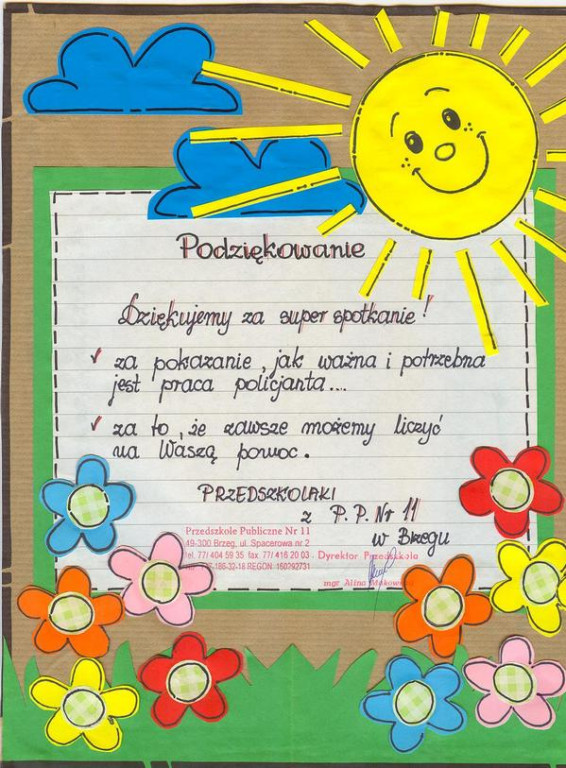 Podziękowanie
Dziękujemy za super spotkanie!
za pokazanie, jak ważna i potrzebna
jest praca policjanta....
za to, że zawsze możemy liczyć
na Waszą pomoc.
PRZEDSZKOLAKI
z P.P. Nr 11
w Brzegu
Przedszkole Publiczne Nr 11
49-300 Brzeg, ul. Spacerowa nr 2
tel. 77/ 404 59 35 fax 77/ 416 20 03
186-32-16 REGON 160292731
Dyrektor Przedszkola
mgr Alina